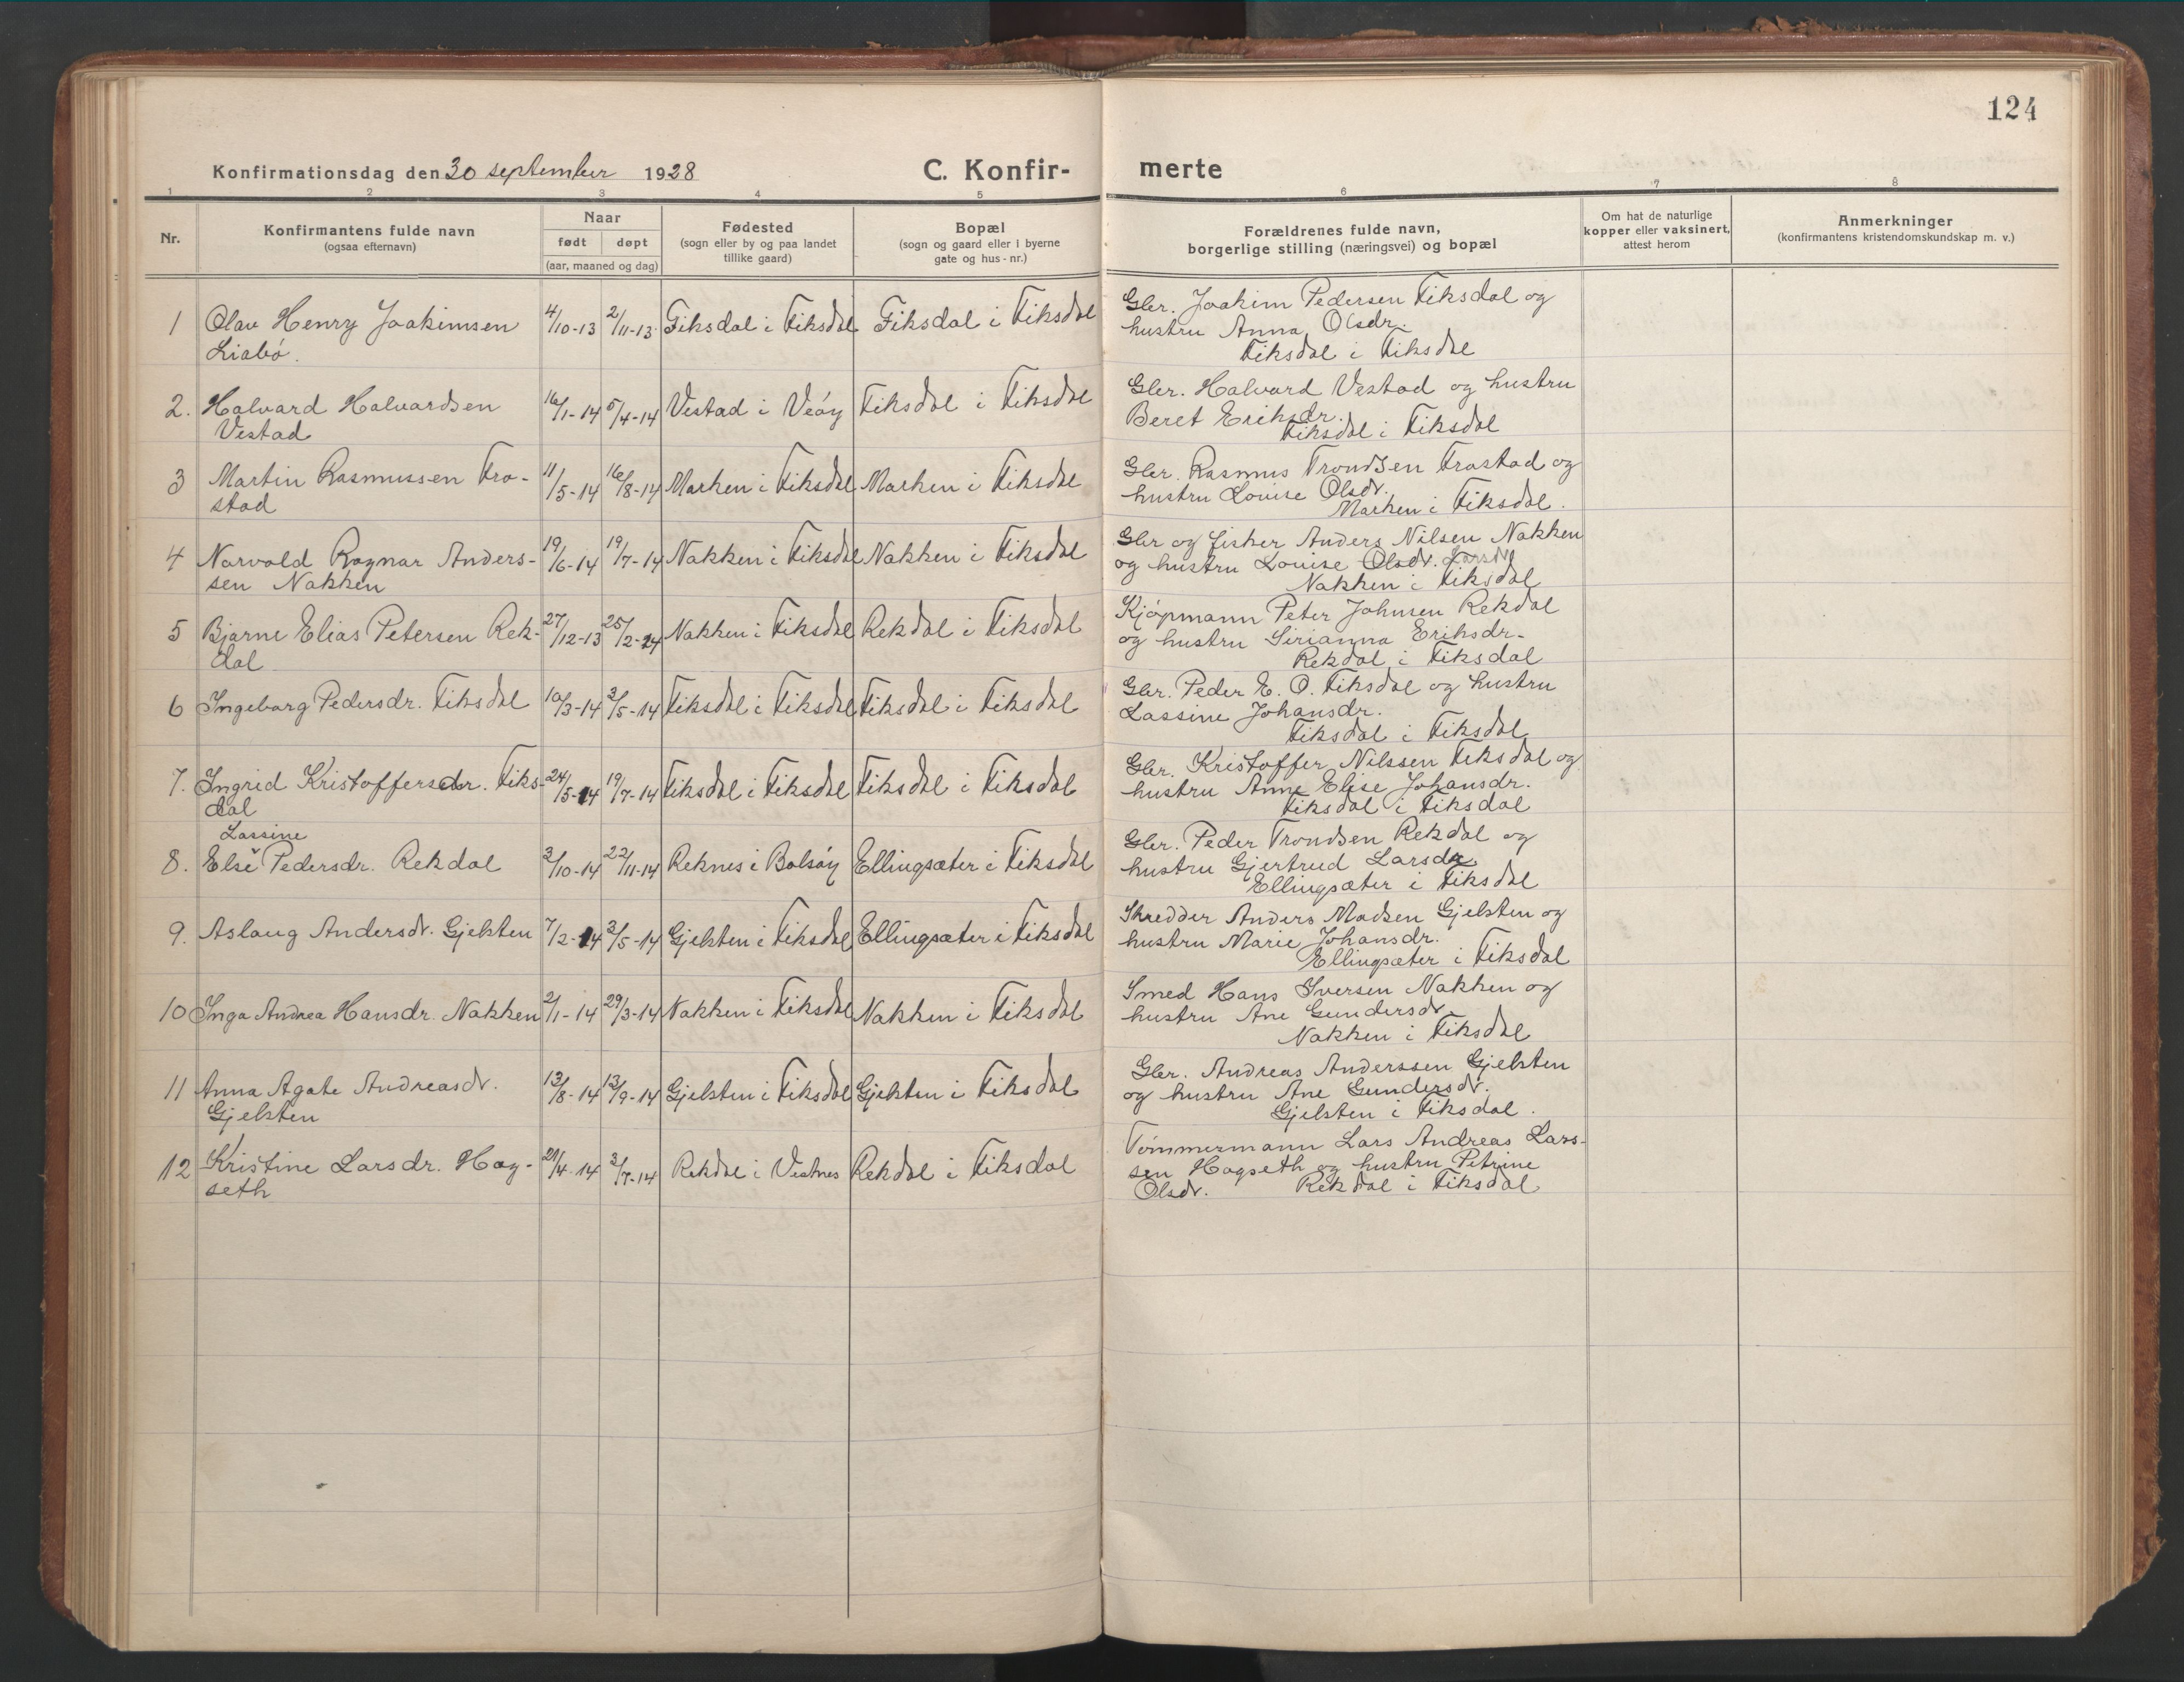 124
Konfirmationsdag den 30 september 1928
C. Konfir-
merte
1 2 3 4 5 6 7 8
Nr.
Konfirmantens fulde navn
(ogsaa efternavn)
Naar
født døpt
(aar, maaned og dag)
Fødested
(sogn eller by og paa landet
tillike gaard)
Bopæl
(sogn og gaard eller i byerne
gate og hus-nr.)
Forældrenes fulde navn,
borgerlige stilling (næringsvei) og bopæl
Om hat de naturlige
kopper eller vaksinert,
attest herom
Anmerkninger
(konfirmantens kristendomskundskap m. v.)
1 Olav Henry Joakimsen 4/10-13 2/11-13 Fiksdal i Fiksdal Fiksdal i Fiksdal
Liabø.
Gbr. Joakim Pedersen Fiksdal og
hustru Anna Olsdr.
Fiksdal i Fiksdal
2. Halvard Halvardsen 16/1-14 5/4-14 Vestad i Veøy Fiksdal i Fiksdal
Vestad
Gbr. Halvard Vestad og hustru
Beret Eriksdr.
Fiksdal i Fiksdal
3 Martin Rasmussen Fra- 11/5-14 16/8-14 Marken i Fiksdal Marken i Fiksdal
stad
Gbr. Rasmus Trondsen Frastad og
hustru Louise Olsdr.
Marken i Fiksdal.
4 Narvald Ragnar Anders- 19/6-14 19/7-14 Nakken i Fiksdal Nakken i Fiksdal
sen Nakken
Gbr og fisker Anders Nilsen Nakken
og hustru Louise Olsdr. Larsdr
Nakken i Fiksdal
5 Bjarne Elias Petersen Rek- 27/12-13 25/2-14 Nakken i Fiksdal Rekdal i Fiksdal
dal
Kjøpmann Peter Johnsen Rekdal
og hustru Sirianna Eriksdr.
Rekdal i Fiksdal
6 Ingeborg Pedersdr. Fiksdal 10/3-14 3/5-14 Fiksdal i Fiksdal Fiksdal i Fiksdal
Gbr. Peder E. O. Fiksdal og hustru
Lassine Johansdr.
Fiksdal i Fiksdal
7. Ingrid Kristoffersdr. Fiks- 24/5-14 19/7-14 Fiksdal i Fiksdal Fiksdal i Fiksdal
dal
Gbr. Kristoffer Nilssen Fiksdal og
hustru Anne Elise Johansdr.
Fiksdal i Fiksdal
Lassine
8. Else Pedersdr. Rekdal 3/10-14 22/11-14 Reknes i Bolsøy Ellingsæter i Fiksdal
Gbr. Peder Trondsen Rekdal og
hustru Gjertrud Larsdr.
Ellingsæter i Fiksdal
9. Aslaug Andersdr. Gjelsten 7/2-14 3/5-14 Gjelsten i Fiksdal Ellingsæter i Fiksdal
Skredder Anders Madsen Gjelsten og
hustru Marie Johansdr.
Ellingsæter i Fiksdal
10 Inga Andrea Hansdr. Nakken 2/1-14 29/3-14 Nakken i Fiksdal Nakken i Fiksdal
Smed Hans Iversen Nakken og
hustru Ane Gundersdr.
Nakken i Fiksdal
11 Anna Agate Andreasdr. 12/8-14 13/9-14 Gjelsten i Fiksdal Gjelsten i Fiksdal
Gjelsten
Gbr. Andreas Anderssen Gjelsten
og hustru Ane Gundersdr.
Gjelsten i Fiksdal.
12 Kristine Larsdr. Hag- 21/4-14 3/7-14 Rekdal i Vestnes Rekdal i Fiksdal
seth
Tømmermann Lars Andreas Lars-
sen Hagseth og hustru Petrine
Olsdr. Rekdal i Fiksdal